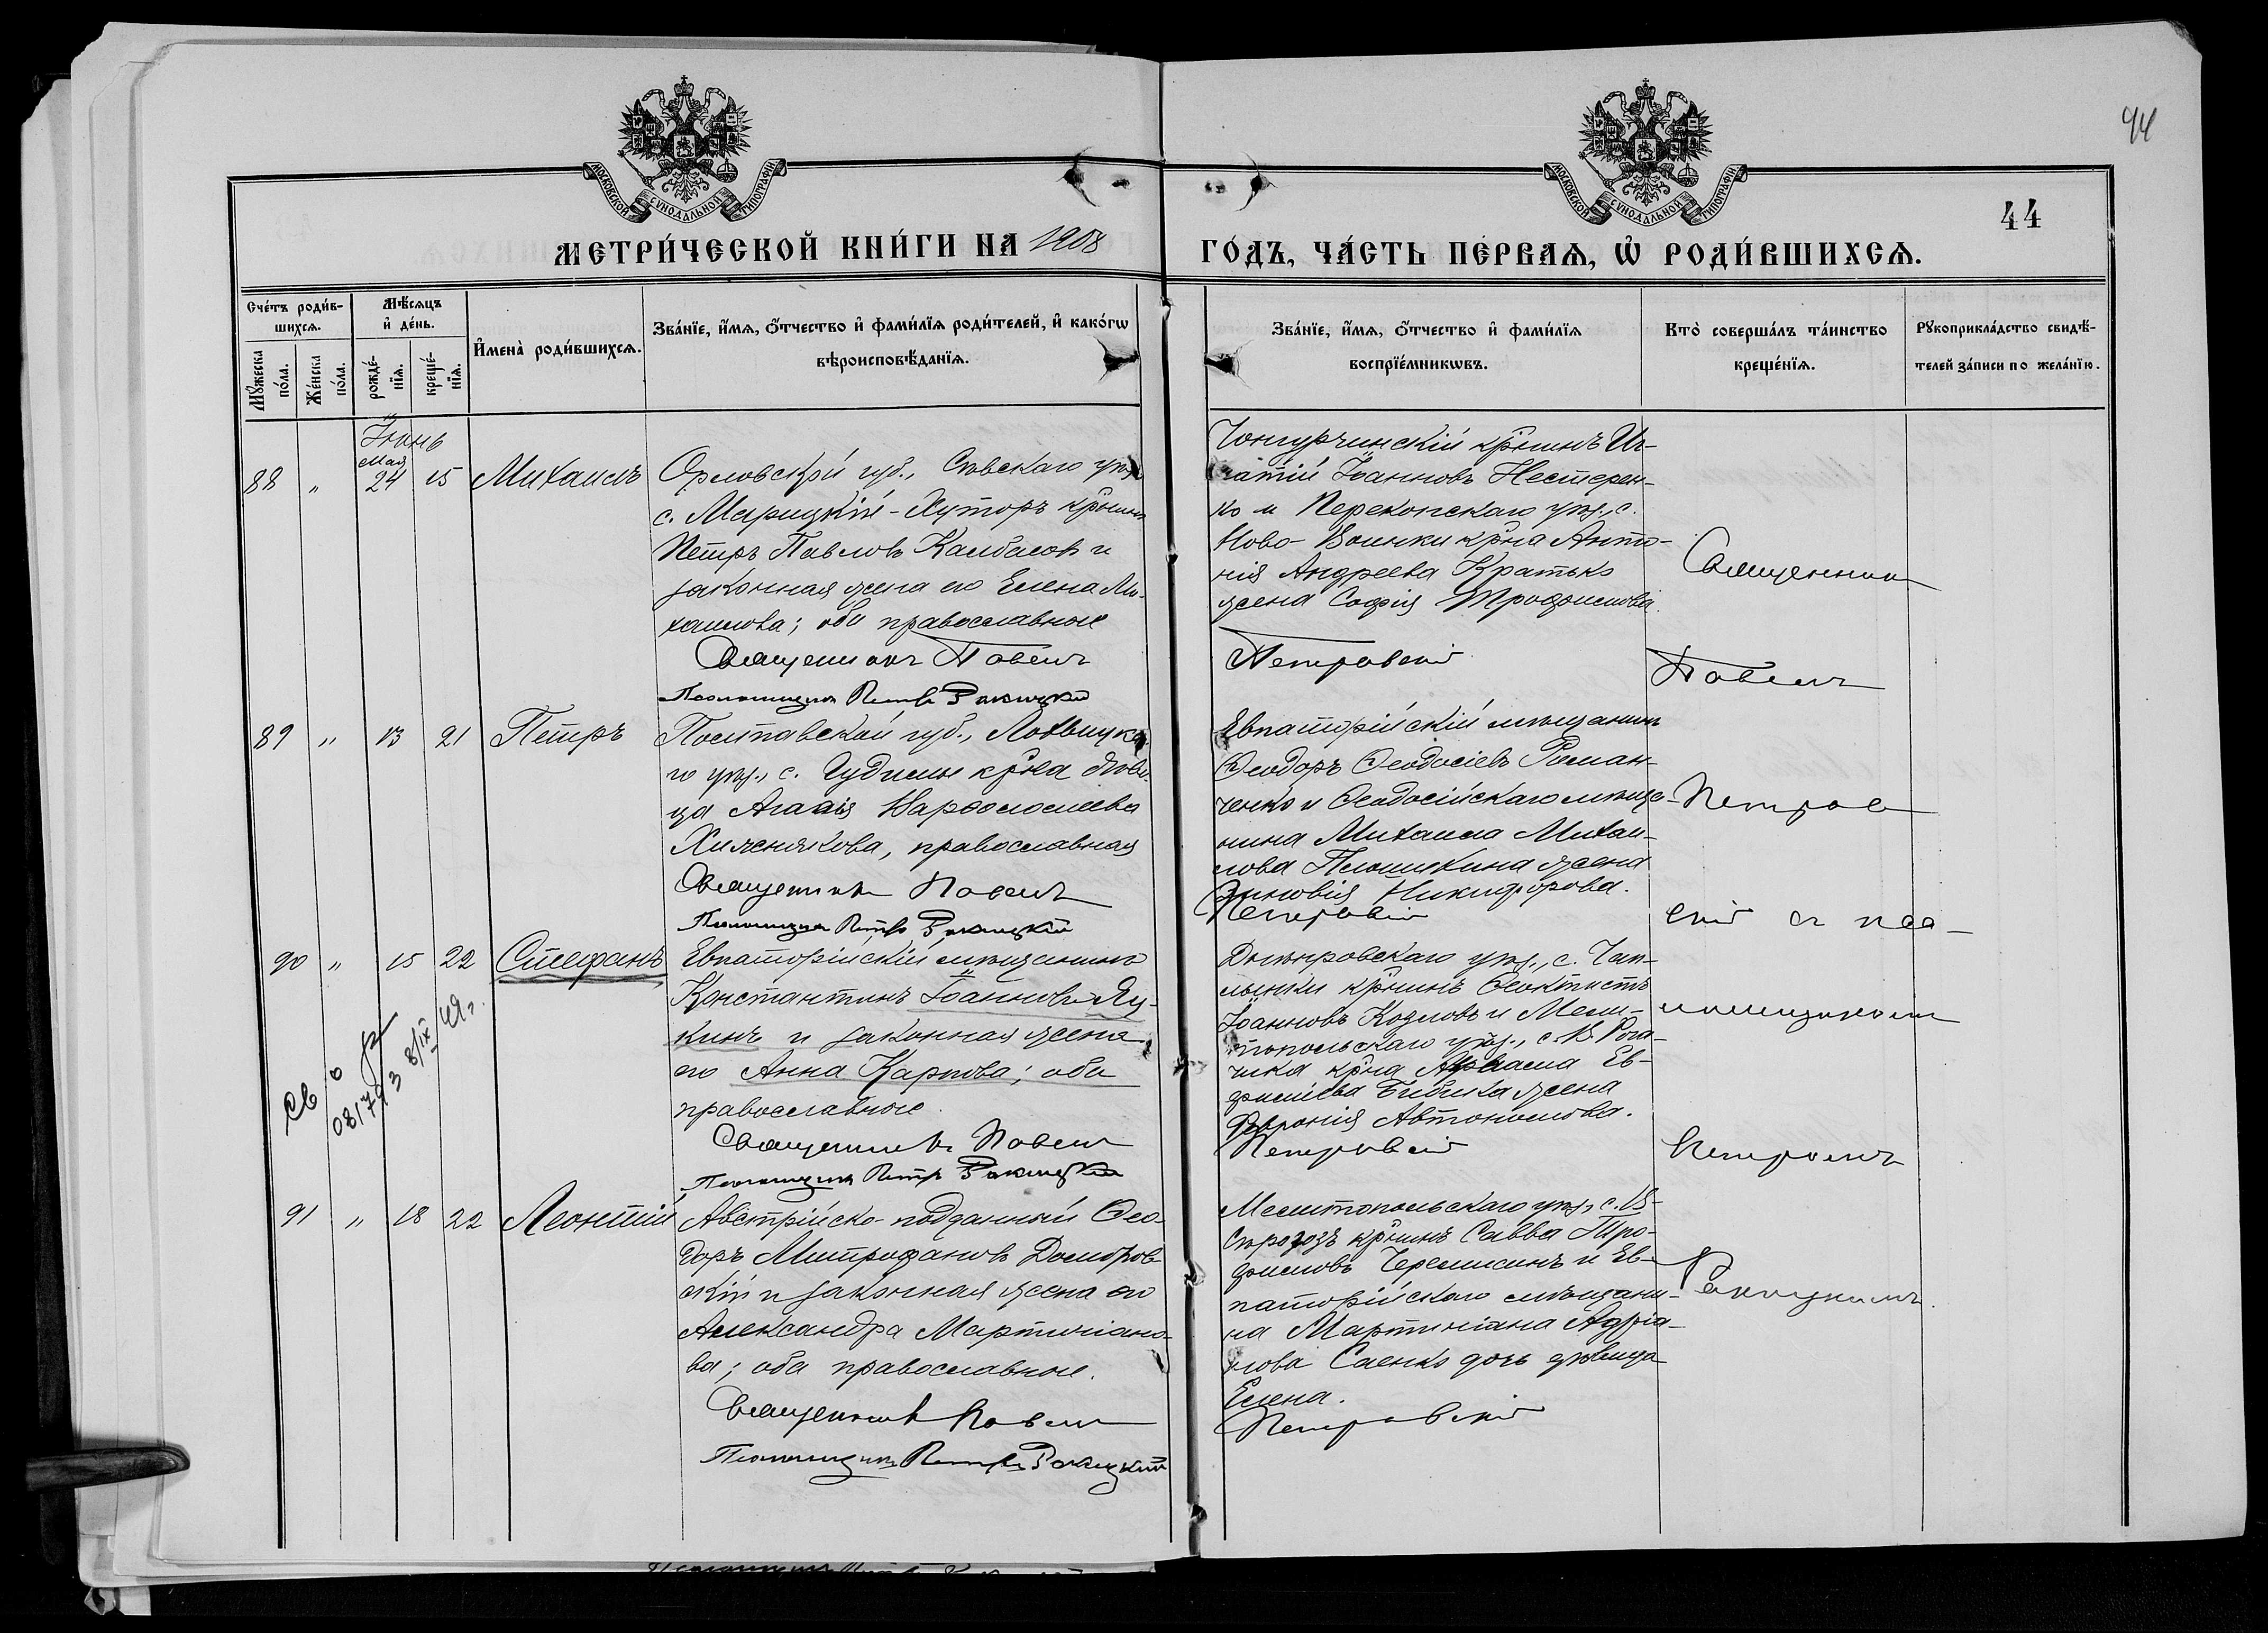 44
МОСКОВСКОЙ СѴНОДАЛЬНОЙ ТИПОГРАФІИ
МОСКОВСКОЙ СѴНОДАЛЬНОЙ ТИПОГРАФІИ
44
МЕТРИ́ЧЕСКОЙ КНИ́ГИ НА 1908 ГО́ДЪ, ЧА́СТЬ ПЕ́РВАѦ, Ѡ҆ РОДИ́ВШИХСѦ.
Сче́тъ роди́в-
шихсѧ.
Мꙋ́жеска по́ла.
Же́нска по́ла.
Мѣ́сѧцъ
и҆ де́нь.
рожде́-
нїѧ.
креще́-
нїѧ.
И҆мена̀ роди́вшихсѧ.
Зва́нїе, и҆́мѧ, ѻ҆́тчество и҆ фами́лїѧ роди́телей, и҆ како́гѡ
вѣроисповѣ́данїѧ.
Зва́нїе, и҆́мѧ, ѻ҆́тчество и҆ фами́лїѧ
воспрїе́мникѡвъ.
Кто̀ соверша́лъ та́инство
креще́нїѧ.
Рꙋкоприкла́дство свидѣ́-
телей за́писи по жела́нїю.
Іюнь
Мая
88 " 24 15 Михаилъ
Орловской губ., Сѣвскаго уѣз.
с. Марицкій-Хуторъ кр̃нинъ
Петръ Павловъ Калбасовъ и
законная жена его Елена Ми-
хаилова; оба православные
Священникъ Павелъ Петровскій
Псаломщикъ Петръ Ракицкій
Чонгурчинскій кр̃нинъ Иг-
натій Іоанновъ Нестерен-
ко и Перекопскаго уѣз., с.
Ново-Воинки кр̃на Анто-
нія Андреева Кратько
жена Софія Трофимова.
Священник
Павелъ
89 " 13 21 Петръ
Полтавской губ., Лохвицка-
го уѣз., с. кр̃ка дѣви-
ца Агаѳія Варѳоломеева
Хижнякова, православная
Священникъ Павелъ Петровскій
Псаломщикъ Петръ Ракицкій
Евпаторійскій мѣщанинъ
Ѳеодоръ Ѳеодосіевъ Роман-
ченко и Ѳеодосійскаго мѣща-
нина Михаила Михаи-
лова Плюшкина жена
Зиновія Никифорова.
Петров
скій съ пса-
90 " 15 22 Стефанъ
081793 8/IX 49 г.
Евпаторійскій мѣщанинъ
Константинъ Іоанновъ Яу-
кинъ и законная жена
его Анна Карпова; оба
православные.
Священникъ Павелъ Петровскій
Псаломщикъ Петръ Ракицкій
Днѣпровскаго уѣз., с. Чап-
лынки кр̃нинъ Ѳеоктистъ
Іоанновъ Козловъ и Мели-
топольскаго уѣз., с. В. Рога-
чика кр̃на Ев-
фиміева Бибика жена
Февронія Автономова.
ломщикомъ
Петромъ
91 " 18 22 Леонтій
Австрійско-подданный Ѳео-
доръ Митрофановъ Домбров-
скій и законная жена его
Александра Мартиніано-
ва; оба православные.
Священникъ Павелъ Петровскій
Псаломщикъ Петръ Ракицкій
Мелитопольскаго уѣз., с. В-
Сѣрогозъ кр̃нинъ Савва Тро-
фимовъ Черемисинъ и Ев-
паторійскаго мѣщани-
на Мартиніана Адріа-
нова Саенко дочь дѣвица
Елена.
Ракицкимъ.